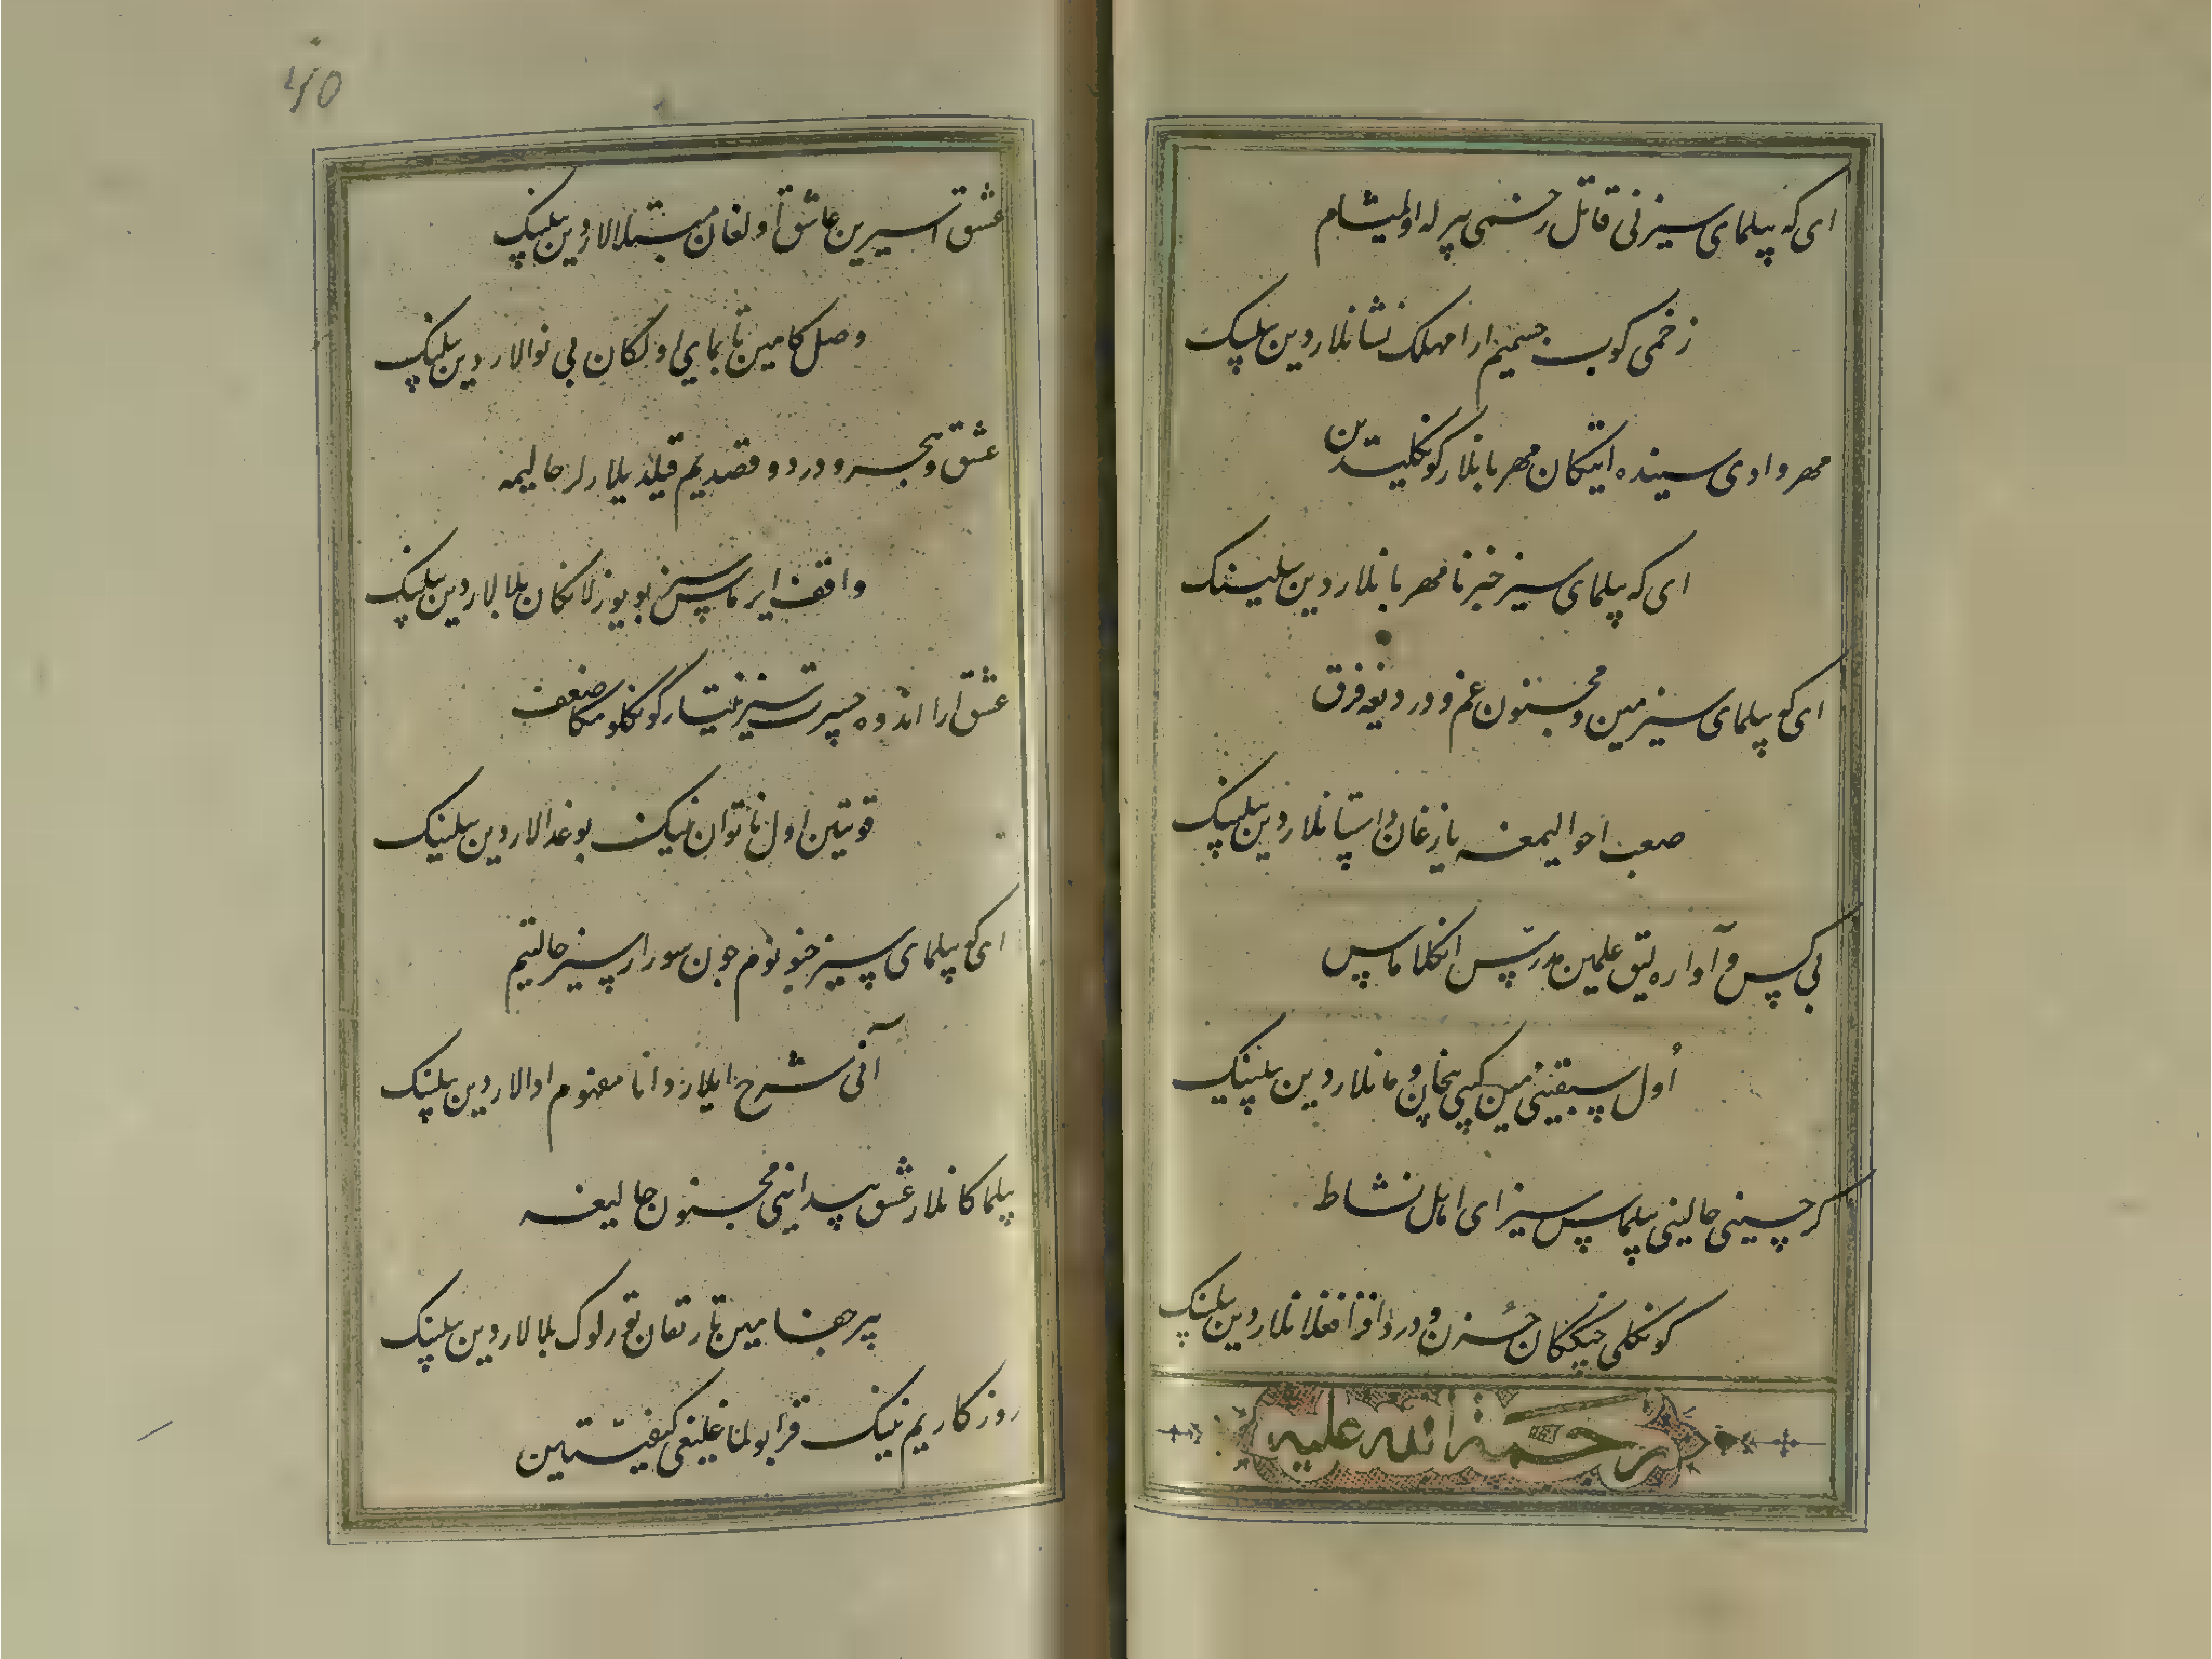 ای که پیلمای سیز نی قاتل رخمی بیرله اولمیشام
زخمی کوب جسمیم ارا مهلک نشانلاردین بیلینک
مهر وادی سینده ایتکان مهربانلار کونکلیدین
ای که پیلمای سیز خبر نامهربانلاردین بیلینک
ای کو پیلمای سیز مین و مجنون غم و دردیغه فرق
صعب احوالیمغه یازغان داستانلاردین بیلینک
بی کس و آواره لیق علمین مدرس انکلاماس
اول سبقنی مین کیبی بیخان و مانلاردین بیلینک
کر چینی حالینی بیلماس سیز ای اهل نشاط
کونکلی چیککان حزن و درد افزا فغانلاردین بیلینک
رحمة الله علیه
40
عشق اسیرین عاشق اولغان مبتلالاردین بیلینک
وصل کامین تابمای اولکان بی نوالاردین بیلینک
عشق و هجر و درد و قصدیم قیلدیلار لر حالیمه
واقف ایرماس سیز بو یوزلانکان بلالاردین بیلینک
عشق ارا اندوه حسرت سیز نیتار کونکلومکا ضعف
قوتین اول ناتوان نینک بو غدالاردین بیلینک
ای کو پیلمای سیز جنونوم جون سورار سیز حالتیم
آنی شرح ایلار دانا مفهوم ادالاردین بیلینک
بیلماکانلار عشق پیداسینی مجنون حالیغه
بیر جفا مین تارتقان قورلوک بلالاردین بیلینک
روزکاریم نینک قرا بولماغلیغی کیفیتین